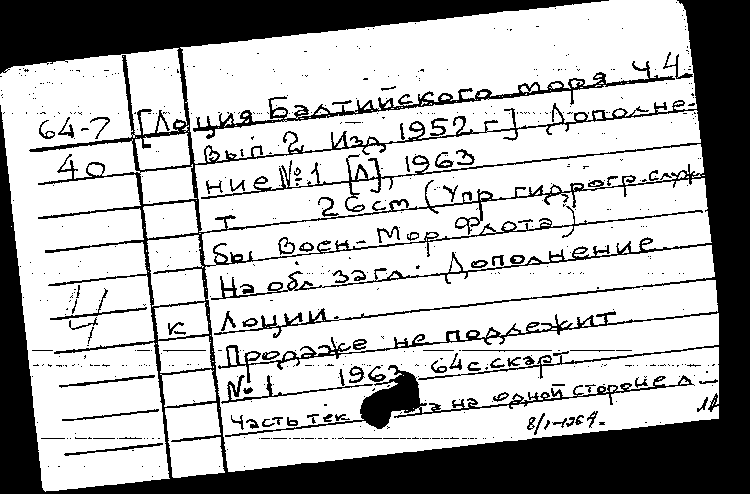 64-7 [Лоция Балтийского моря ч.4.
40 Вып. 2. Изд. 1952 г.] Дополне-
ние №.1. [Л], 1963
т 26 см (Упр. гидрогр. служ
бы Воен-Мор. Флота)
На обл. загл.: Дополнение
4 к Лоции.
Продаже не подлежит
№ 1. 1963 64 с. с карт.
Часть тек на одной стороне л